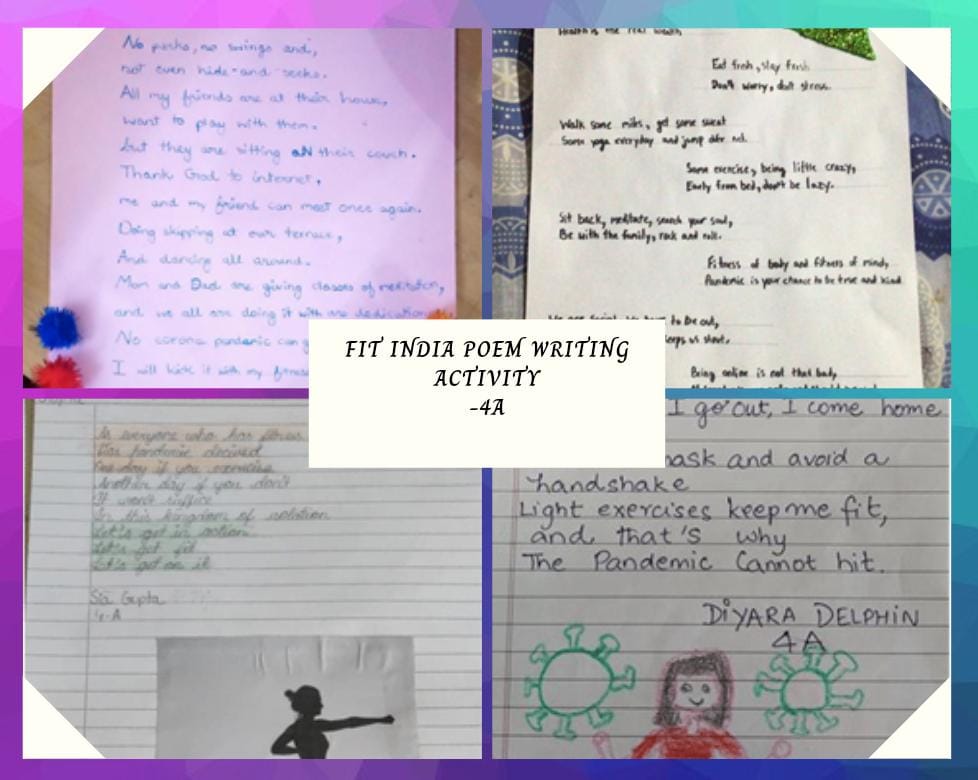 No parks, no swings and,
not even hide-and-seeks.
All my friends are at their house,
want to play with them.
but they are sitting on their couch.
Thank God to internet,
me and my friend can meet once again.
Doing skipping at our terrace,
And dancing all around.
Mom and Dad are giving classes of meditation,
and we all are doing it with dedication
No corona pandemic can
I will kick it with my fitness
Health is the real wealth,
Eat fresh, stay fresh
Don't worry, don't stress.
Walk some miles, get some sweat
Some yoga everyday and jump
Some exercise, being little crazy,
Early from bed, don't be lazy.
Sit back, meditate, search your soul,
Be with the family, rock and roll.
Fitness of body and fitness of mind,
Pandemic is your chance to be true and kind
to be out,
keeps us
Being online is not that bad,
FIT INDIA POEM WRITING
ACTIVITY
-4A
is everyone who has fitness
pandemic
One day if you exercise
Another day if you don't
It won't suffice
In this kingdom of isolation
Let's get in action
Let's get fit
Let's get on it
Sia Gupta
4-A
I go out, I come home
mask and avoid a
handshake
Light exercises keep me fit,
and that's why
The Pandemic Cannot hit.
DIYARA DELPHIN
4A